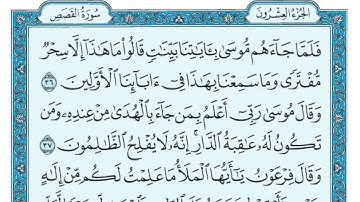 سُورَةُ القَصَصِ الجُزْءُ العِشْرُونَ
فَلَمَّا جَآءَهُم مُّوسَىٰ بِـَٔايَـٰتِنَا بَيِّنَـٰتٍ قَالُوا۟ مَا هَـٰذَآ إِلَّا سِحْرٌ
مُّفْتَرًى وَمَا سَمِعْنَا بِهَـٰذَا فِىٓ ءَابَآئِنَا ٱلْأَوَّلِينَ ٣٦
وَقَالَ مُوسَىٰ رَبِّىٓ أَعْلَمُ بِمَن جَآءَ بِٱلْهُدَىٰ مِنْ عِندِهِۦ وَمَن
تَكُونُ لَهُۥ عَـٰقِبَةُ ٱلدَّارِ ۖ إِنَّهُۥ لَا يُفْلِحُ ٱلظَّـٰلِمُونَ ٣٧
وَقَالَ فِرْعَوْنُ يَـٰٓأَيُّهَا ٱلْمَلَأُ مَا عَلِمْتُ لَكُم مِّنْ إِلَـٰهٍ